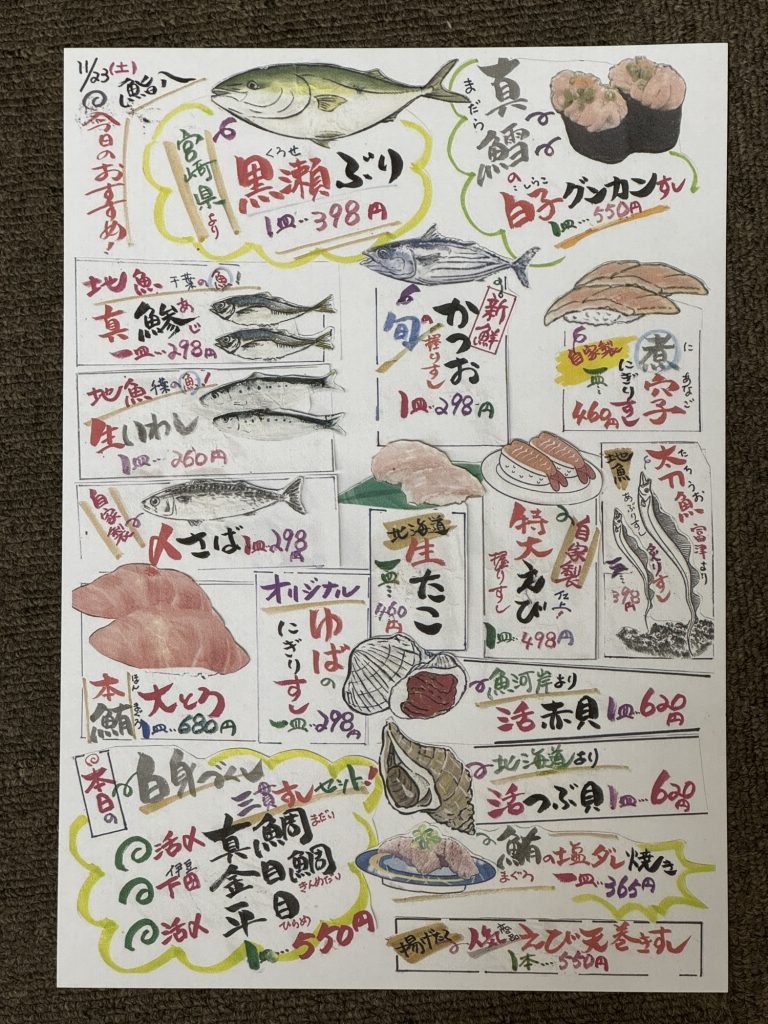 11/23(土)
鮨八
今日のおすすめ!
宮崎県より
くろせ
黒瀬ぶり
1皿…398円
まだら
真鱈の
しらこ
白子グンカンすし
1皿…550円
地魚 千葉の魚!
あじ
真鯵
一皿…298円
地魚 千葉の魚!
生いわし
1皿…260円
自家製
〆さば 1皿…298円
新鮮
旬の握りすし
かつお
1皿…298円
自家製
に あなご
煮穴子
にぎりすし
一皿…460円
北海道
生たこ
一皿…460円
自家製 仕上!
特大えび
握りすし
1皿…498円
地魚
たちうお
太刀魚
富津より
あぶりすし
炙りすし
一皿…398円
ほんまぐろ
本鮪 大とろ
1皿…680円
オリジナル
ゆばの
にぎりすし
一皿…298円
魚河岸より
活赤貝 1皿…620円
北海道より
活つぶ貝 1皿…620円
本日の
白身づくし
三貫すしセット!
活〆 真鯛 まだい
伊豆下田 金目鯛 きんめだい
活〆 平目 ひらめ
550円
まぐろ
鮪の塩ダレ焼き
一皿…365円
揚げたて
人気
えび天巻きすし
1本…550円